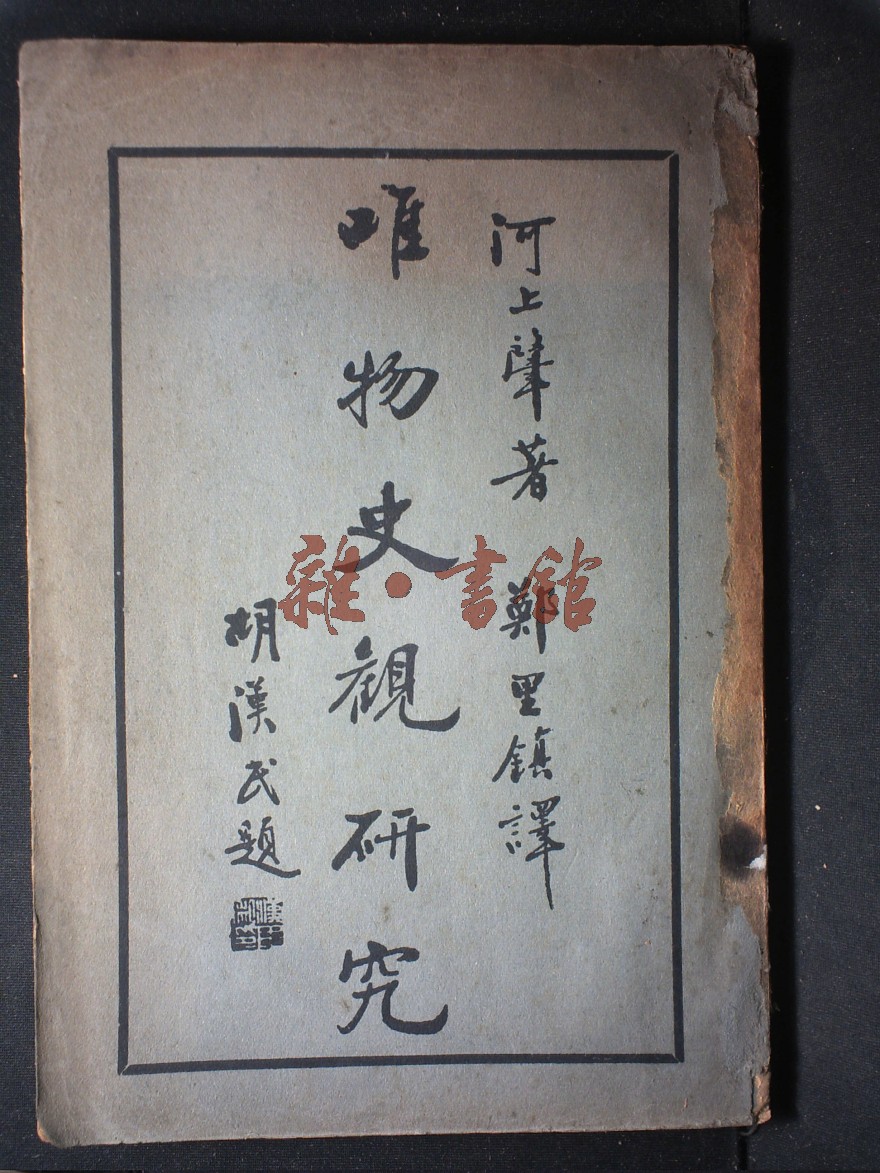 河上肇著 鄭里鎮譯
唯物史観研究
胡漢民題
雜·書館